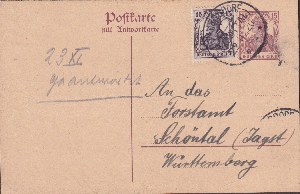 Postkarte
mit Antwortkarte
15
15
23 XI
geantwortet
An das
Forstamt
Schöntal (Jagst)
Württemberg